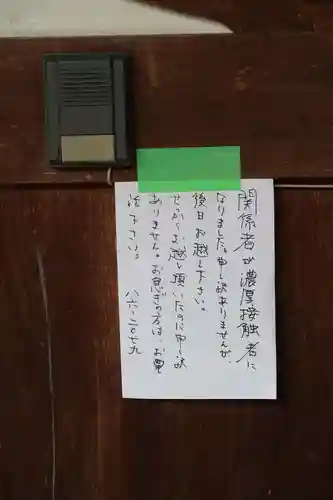 関係者が濃厚接触者に
なりました。申し訳ありませんが、
後日お越し下さい。
せっかくお越し頂いたのに申し訳
ありません。お急ぎの方は、お電
話下さい。
八六-二〇七九